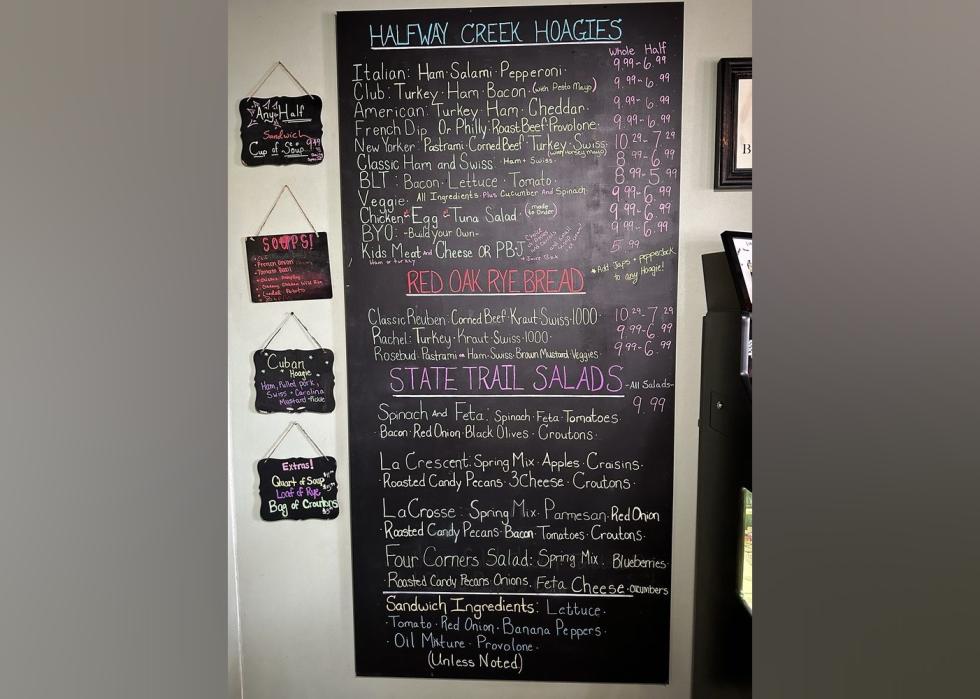 HALFWAY CREEK HOAGIES
Whole Half
Italian: Ham·Salami·Pepperoni· 9.99-6.99
Club: Turkey·Ham·Bacon·(with Pesto Mayo) 9.99-6.99
American: Turkey·Ham·Cheddar· 9.99-6.99
French Dip Or Philly: Roast Beef·Provolone· 9.99-6.99
New Yorker: Pastrami·Corned Beef·Turkey·Swiss· 10.29-7.29
(with Horsey Mayo)
Classic Ham and Swiss ·Ham+Swiss· 8.99-6.99
BLT: Bacon·Lettuce·Tomato· 8.99-5.99
Veggie: All Ingredients Plus Cucumber And Spinach 9.99-6.99
Chicken Egg Tuna Salad·(made to Order) 9.99-6.99
BYO: -Build your Own- 9.99-6.99
Kids Meat And Cheese OR PB·J 5.99
Ham or turkey
*Add Japs + Pepperjack
to any Hoagie!
RED OAK RYE BREAD
Classic Reuben: Corned Beef·Kraut·Swiss·1000· 10.29-7.29
Rachel: Turkey·Kraut·Swiss·1000· 9.99-6.99
Rosebud: Pastrami or Ham·Swiss·Brown Mustard·Veggies· 9.99-6.99
STATE TRAIL SALADS -All Salads-
9.99
Spinach And Feta: Spinach·Feta·Tomatoes·
·Bacon·Red Onion·Black Olives·Croutons·
La Crescent: Spring Mix·Apples·Craisins·
·Roasted Candy Pecans·3Cheese·Croutons·
LaCrosse: Spring Mix·Parmesan·Red Onion
·Roasted Candy Pecans·Bacon·Tomatoes·Croutons·
Four Corners Salad: Spring Mix. Blueberries·
·Roasted Candy Pecans·Onions, Feta Cheese·cucumbers
Sandwich Ingredients: Lettuce·
·Tomato·Red Onion·Banana Peppers·
·Oil Mixture·Provolone·
(Unless Noted)
Any Half
Sandwich
Cup of Soup
SOUPS!
French Onion
Tomato Basil
Cuban
Hoagie
Ham, Pulled pork,
Swiss + Carolina
Mustard·Pickle
Extras!
Quart of Soup
Loaf of Rye
Bag of Croutons